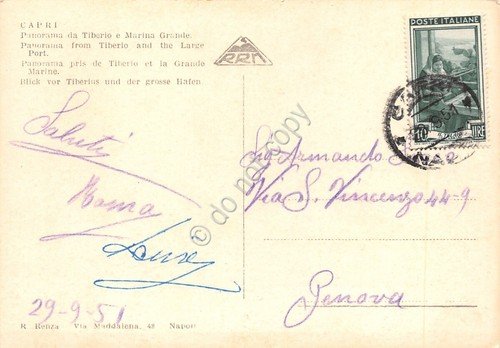 CAPRI
Panorama da Tiberio e Marina Grande.
Panorama from Tiberio and the Large
Port.
Panorama pris de Tiberio et la Grande
Marine.
Blick vor Tiberius und der grosse Hafen
RRN
POSTE ITALIANE
10 LIRE
Saluti
Sig Armando
Via S. Vincenzo 44-9
Genova
29-9-51
R. Renza Via Maddalena, 42 Napoli
© do not copy